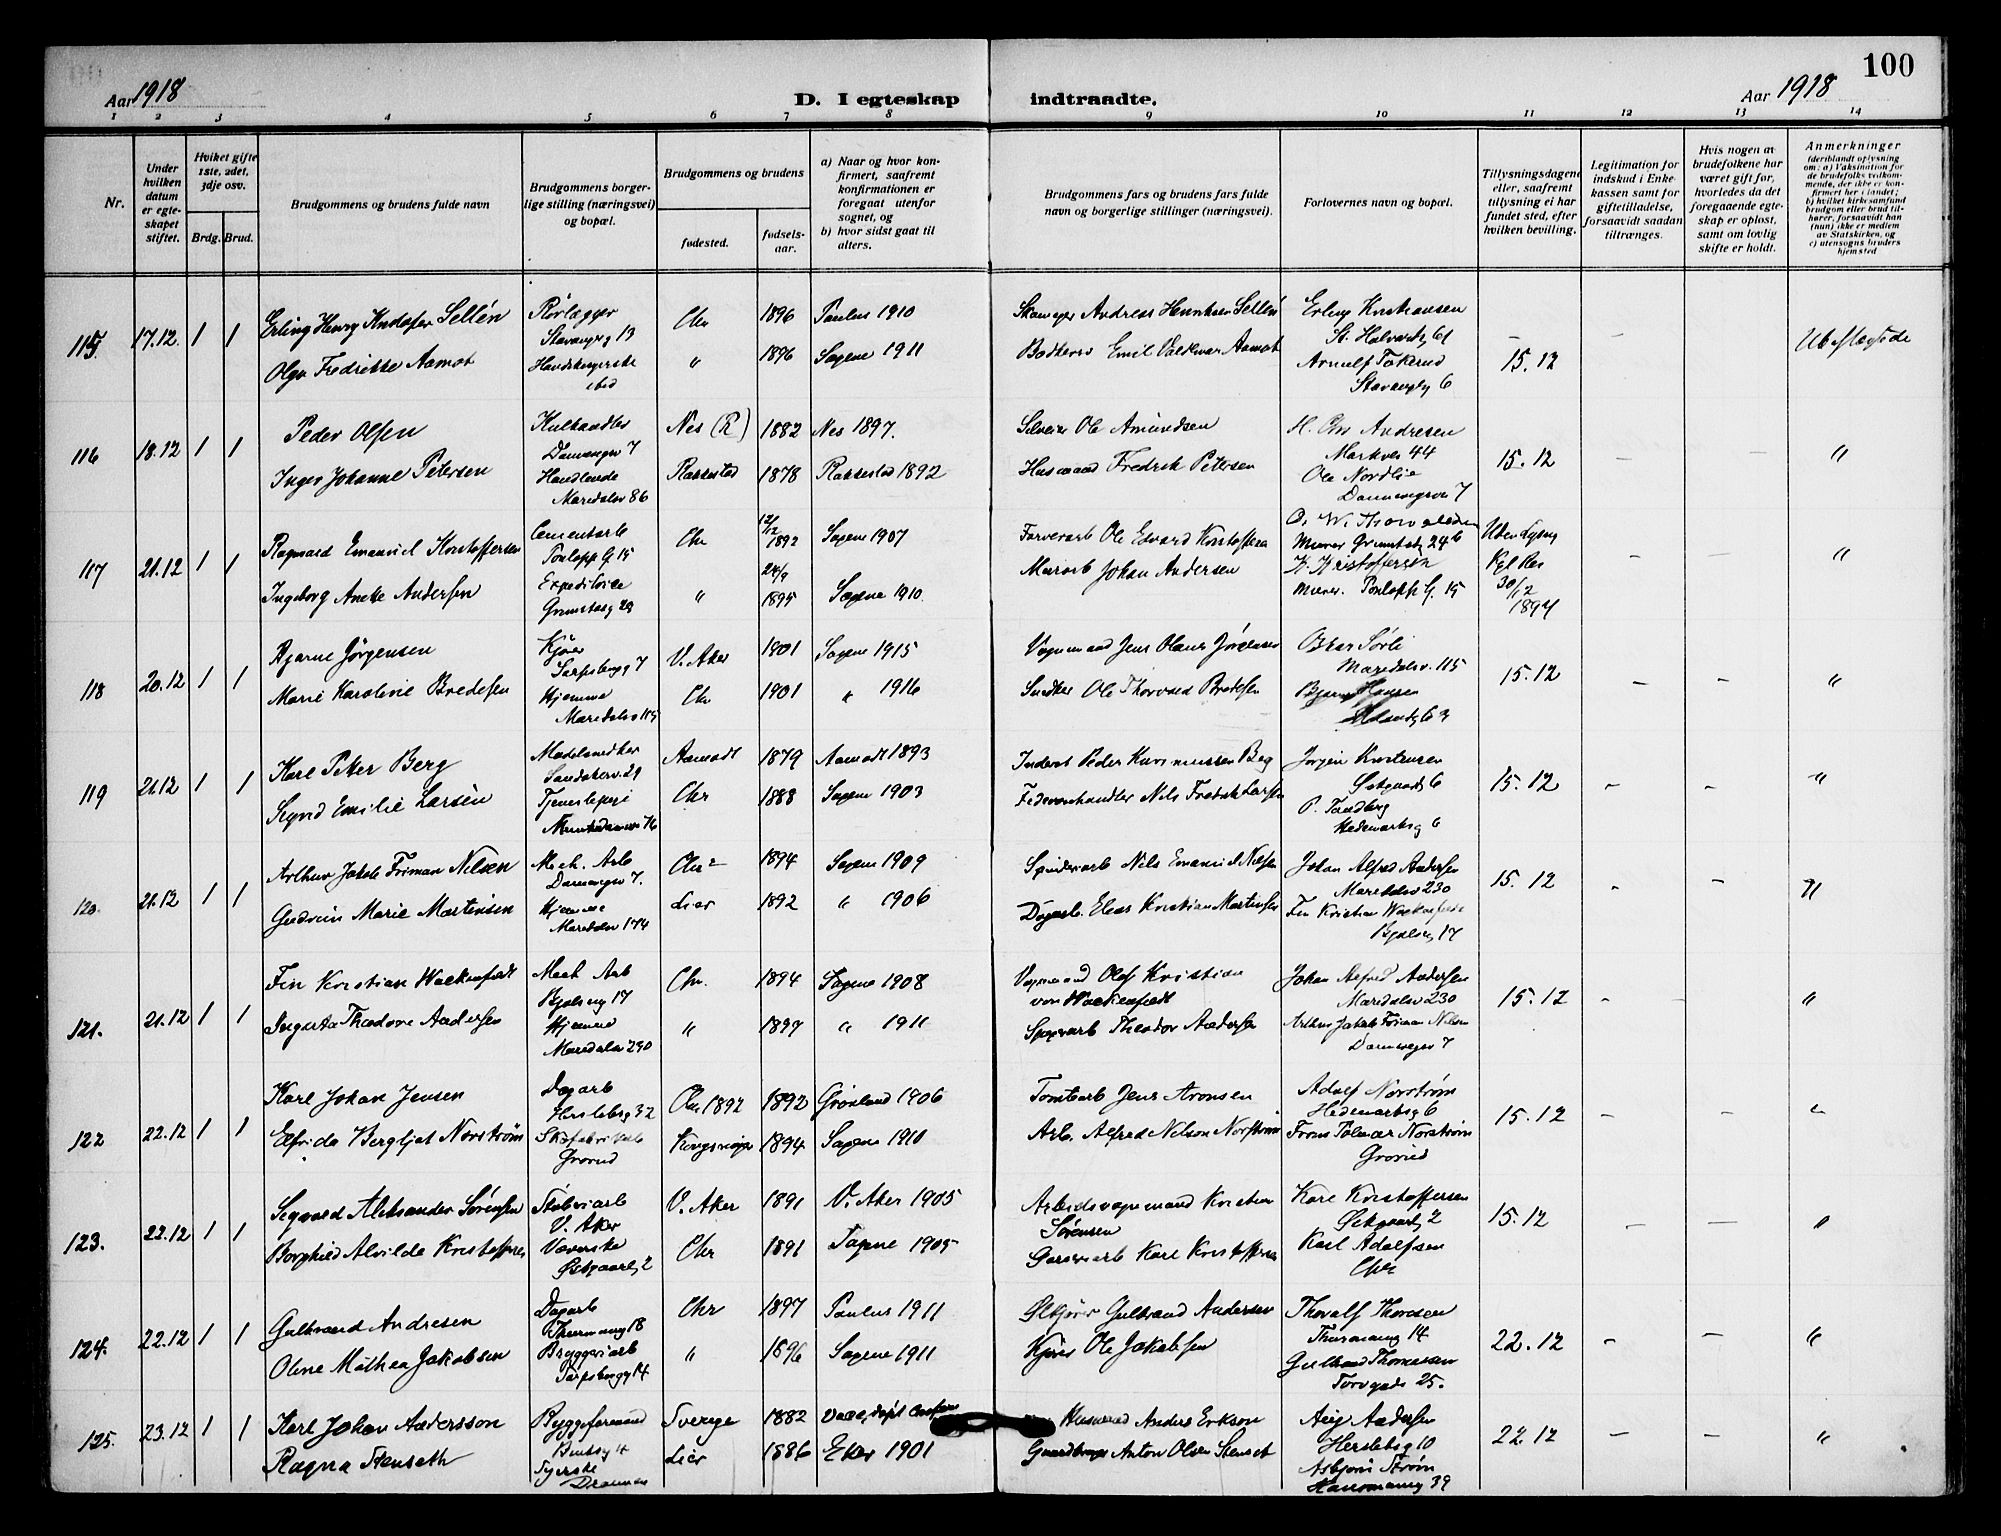 100
Aar 1918
D. I egteskap indtraadte.
Aar 1918
1 2 3 4 5 6 7 8 9 10 11 12 13 14
Nr.
Under hvilken datum er egteskapet stiftet.
Hviket gifte 1ste, 2det, 3dje osv.
Brdg. Brud.
Brudgommens og brudens fulde navn
Brudgommens borgerlige stilling (næringsvei) og bopæl.
Brudgommens og brudens
fødested.
fødselsaar.
a) Naar og hvor konfirmert, saafremt konfirmationen er foregaat utenfor sognet, og
b) hvor sidst gaat til alters.
Brudgommens fars og brudens fars fulde navn og borgerlige stillinger (næringsvei).
Forlovernes navn og bopæl.
Tillysningsdagene eller, saafremt tillysning ei har fundet sted, efter hvilken bevilling.
Legitimation for indskud i Enkekassen samt for giftetilladelse, forsaavidt saadan tiltrænges.
Hvis nogen av brudefolkene har været gift før, hvorledes da det foregaaende egteskap er opløst, samt om lovlig skifte er holdt.
Anmerkninger
(deriblandt oplysning om: a) Vaksination for de brudefolks vedkommende, der ikke er konfirmert her i landet; b) hvilket kirkesamfund brudgom eller brud tilhører, forsaavidt han (hun) ikke er medlem av Statskirken, og c) utensogns bruders hjemsted
115. 17.12. 1 1 Erling Henry Sellén Rørlægger Chr 1896 Paulus 1910 Andreas Henriksen Sellén Erling Kristiansen
Stavangerg 13 St. Halvardsg 61
Olga Fredrikke Aamot " 1896 Sagene 1911 Emil Valdemar Aamot Arnulf 15.12
Stavangerg 6
116 18.12 1 1 Peder Olsen Kulhandler Nes (R) 1882 Nes 1897. Ole Amundsen Andresen
Dannevigsv 7 Markvei 44
Inger Johanne Petersen Handlende Rakkestad 1878 Rakkestad 1892 Husmand Fredrik Petersen Ole Nordlie 15.12 "
Maridalsv 86 Dannevigsv 7
117 21.12 1 1 Ragnvald Emanuel Kristoffersen Cementarb Chr 12/12 1892 Sagene 1907 Farverarb Ole Edvard Kristoffersen Uden Lysng
Grimstadg 24 b
Ingeborg Anette Andersen " 24/9 1895 Sagene 1910. Murarb Johan Andersen K. Kristoffersen Kgl Res
Murer. 15 30/12 1894
118 20.12 1 1 Bjarne Jørgensen Kjører V. Aker 1901 Sagene 1915 Vognmand Jens Olaus Jørgensen Oskar Sørli
Sarpsborgg 7 Maridalsv. 115
Marie Karoline Bredesen Hjemme Chr 1901 " 1916 Snedker Ole Thorvald Bredesen Hansen 15.12 "
Maridalsv 115
119 21.12 1 1 Karl Peter Berg Modelsnedker Aamodt 1879 Aamodt 1893 Inderst Peder Rasmussen Berg Jørgen Kristensen
Sandakerv. 29 Østgaardsg 6
Signe Emilie Larsen Tjenestepige Chr 1888 Sagene 1903 Nils Fredrik Larsen P. Sandberg 15.12 "
Munkedamsv 76 Hedemarksg 6
120. 21.12 1 1 Arthur Jakob Friman Nilsen Mech. Arb Chr 1894 Sagene 1909 Nils Emanuel Nilsen Johan Alfred Andersen
Dannevigsv 7. Maridalsv 230
Gudrun Marie Martinsen Hjemme Lier 1892 " 1906 Dagarb. Elias Kristian Martinsen Fin Kristian Wackenfeldt 15.12 "
Maridalsv 174 Bjølseng 17
121. 21.12 1 1 Fin Kristian Wackenfeldt Mech Arb Chr. 1894 Sagene 1908 Vognmand Olaf Kristian Johan Alfred Andersen
Bjølseng 17 von Wackenfeldt Maridalsv 230
Augusta Theodore Andersen Hjemme " 1897 " 1911 Theodor Andersen Arthur Jakob Friman Nilsen 15.12 "
Maridalsv 230 Dannevigsv 7
122 22.12 1 1 Karl Johan Jensen Dagarb Chr 1892 1892 Grønland 1906 Tomtearb Jens Aronsen Adolf Norstrøm
Herslebsg 32 Hedemarksg 6
Elfrida Bergljot Norstrøm Kongsvinger 1894 Sagene 1910 Arb. Alfred Nilson Norstrøm Norstrøm 15.12 "
Grorud Grorud
123. 22.12 1 1 Sigvard Aleksander Sørensen Støberiarb V. Aker 1891 V. Aker 1905 Arbeidsvognmand Kristian Kare Kristoffersen
V. Aker Sørensen Østgaardsg 2 15.12
Borghild Alvilde Kristoffersen Væverske Chr 1891 Sagene 1905 Garveriarb Karl Kristoffersen Karl Adolfsen "
Østgaardsg 2 Chr
124. 22.12 1 1 Gulbrand Andresen Dagarb Chr 1897 Paulus 1911 Ølkjører Gulbrand Andersen Thoralf Thoresen
Thurmanng 18 Thurmanng 14
Oline Mathea Jakobsen Bryggeriarb " 1896 Sagene 1911 Kjører Ole Jakobsen Gulbrand Thomassen 22.12 "
Sarpsborgg 14 Torvgade 25.
125. 23.12 1 1 Karl Johan Andersson Byggeformand Sverige 1882 Husmand Anders Erikson Andersen
Herslebsg 10
Ragna Stenseth Syerske Lier 1886 Eker 1901 Gaardbruger Anton Olsen Stenset Asbjørn Strøm 22.12 "
Drammen Hausmanng 39